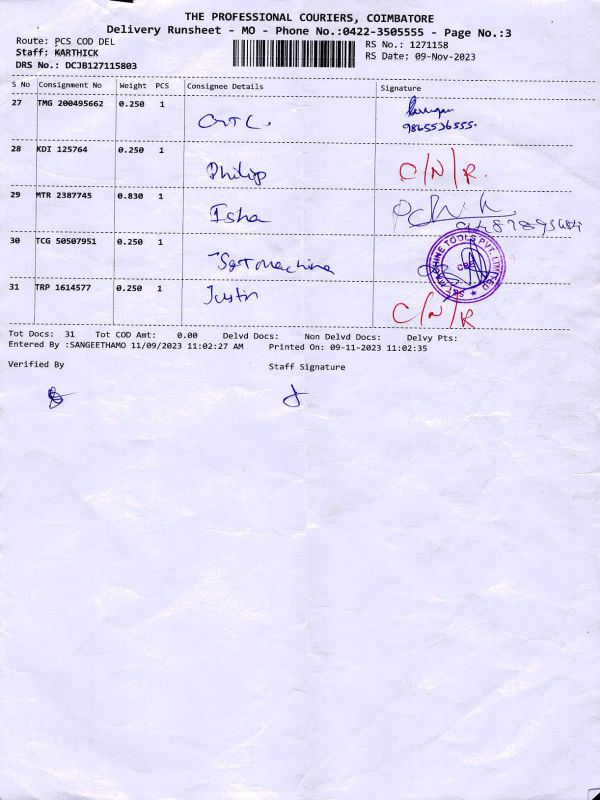 THE PROFESSIONAL COURIERS, COIMBATORE
Delivery Runsheet - MO - Phone No.:0422-3505555 - Page No.:3
Route: PCS COD DEL
RS No.: 1271158
Staff: KARTHICK
RS Date: 09-Nov-2023
DRS No.: DCJB127115803
S No Consignment No Weight PCS Consignee Details Signature
27 TMG 200495662 0.250 1
9865536555.
28 KDI 125764 0.250 1
Philip C/N/R.
29 MTR 2387745 0.830 1
Isha
30 TCG 50507951 0.250 1
S&T Machine
S&T MACHINE TOOLS PVT. LIMITED
CBE
31 TRP 1614577 0.250 1
Justin C/N/R
Tot Docs: 31 Tot COD Amt: 0.00 Delvd Docs: Non Delvd Docs: Delvy Pts:
Entered By :SANGEETHAMO 11/09/2023 11:02:27 AM Printed On: 09-11-2023 11:02:35
Verified By Staff Signature